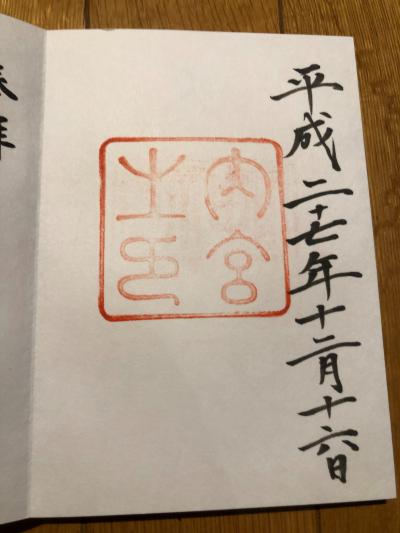 平成二十七年十二月十六日
内宮
之印